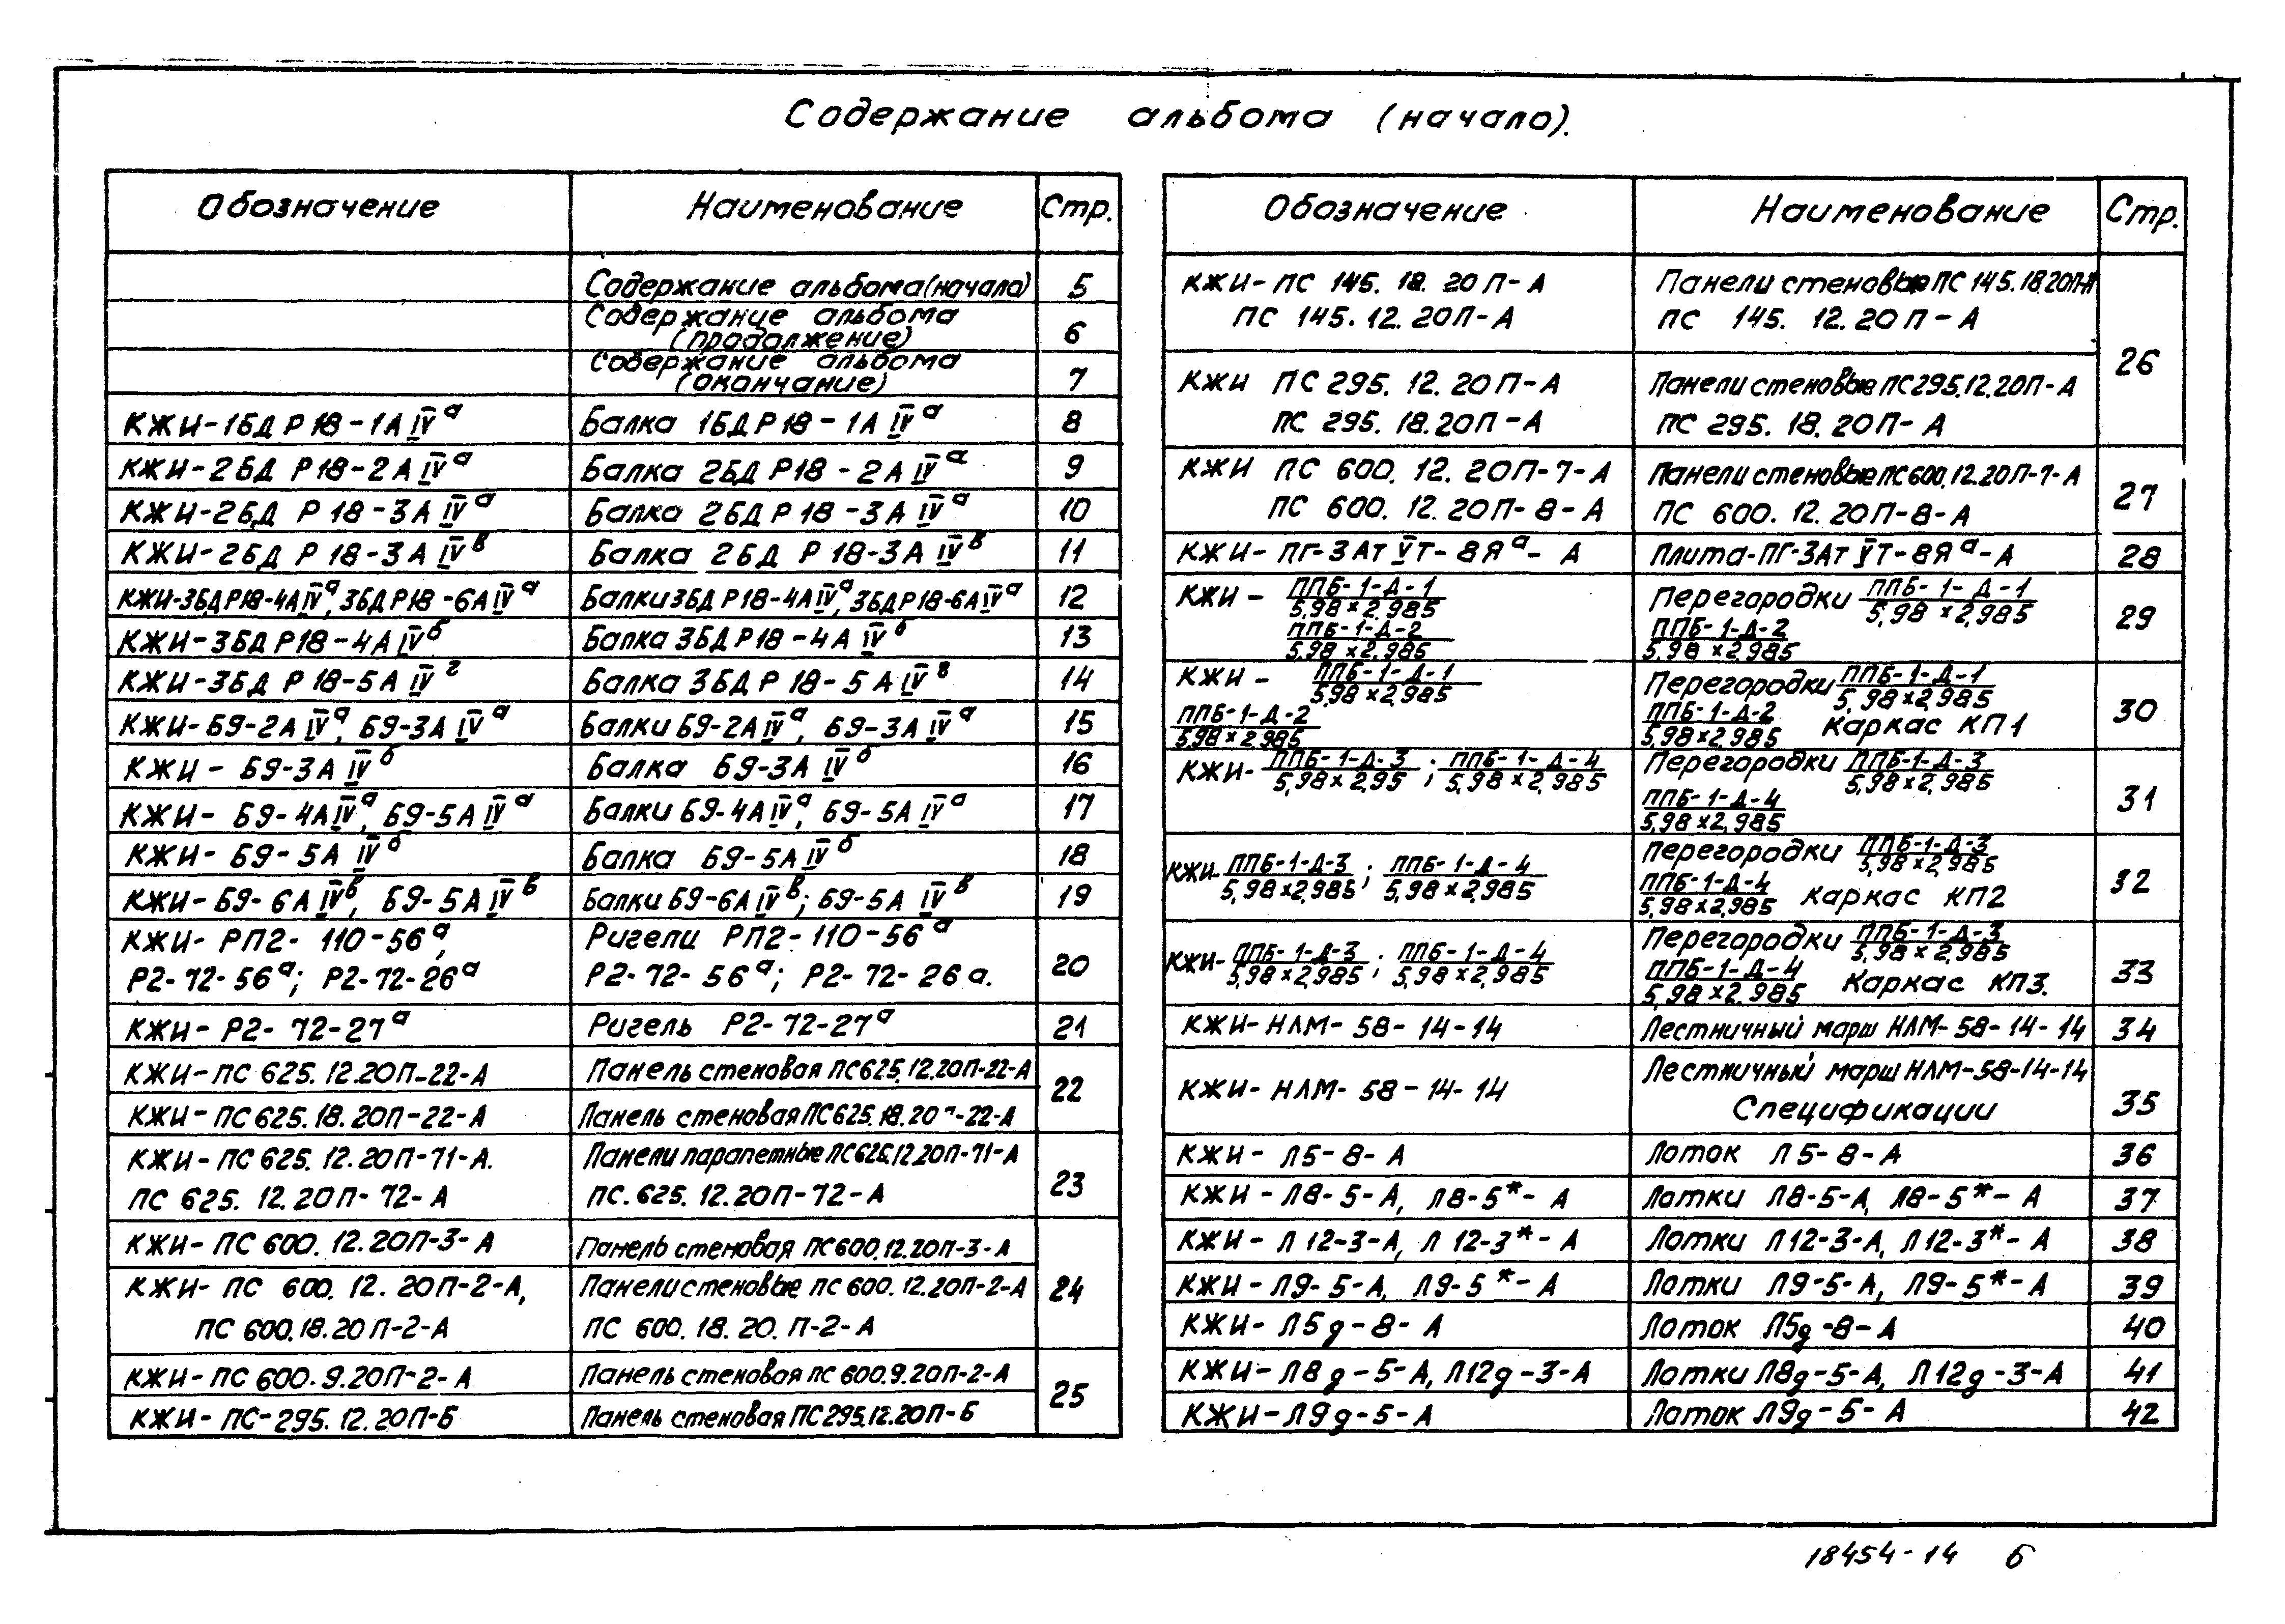 Содержание альбома (начало).
Обозначение Наименование Стр.
Содержание альбома (начало) 5
Содержание альбома
(продолжение) 6
Содержание альбома
(окончание) 7
КЖИ-1БД Р18-1А IV а Балка 1БД Р18-1А IV а 8
КЖИ-2БД Р18-2А IV а Балка 2БД Р18-2А IV а 9
КЖИ-2БД Р 18-3А IV а Балка 2БД Р 18-3А IV а 10
КЖИ-2БД Р 18-3А IV в Балка 2БД Р 18-3А IV в 11
КЖИ-3БД Р18-4А IV а, 3БД Р18-6А IV а Балки 3БД Р18-4А IV а, 3БД Р18-6А IV а 12
КЖИ-3БД Р18-4А IV б Балка 3БД Р18-4А IV б 13
КЖИ-3БД Р 18-5А IV г Балка 3БД Р 18-5А IV в 14
КЖИ-Б9-2А IV а, Б9-3А IV а Балки Б9-2А IV а, Б9-3А IV а 15
КЖИ-Б9-3А IV б Балка Б9-3А IV б 16
КЖИ-Б9-4А IV а, Б9-5А IV а Балки Б9-4А IV а, Б9-5А IV а 17
КЖИ-Б9-5А IV б Балка Б9-5А IV б 18
КЖИ-Б9-6А IV в, Б9-5А IV в Балки Б9-6А IV в; Б9-5А IV в 19
КЖИ-РП2-110-56 а, Ригели РП2-110-56 а
Р2-72-56 а; Р2-72-26 а Р2-72-56 а; Р2-72-26 а. 20
КЖИ-Р2-72-27 а Ригель Р2-72-27 а 21
КЖИ-ПС 625.12.20П-22-А Панель стеновая ПС625.12.20П-22-А
22
КЖИ-ПС 625.18.20П-22-А Панель стеновая ПС625.18.20П-22-А
КЖИ-ПС 625.12.20П-71-А. Панели парапетные ПС625.12.20П-71-А
ПС 625.12.20П-72-А ПС.625.12.20П-72-А 23
КЖИ-ПС 600.12.20П-3-А Панель стеновая ПС600.12.20П-3-А
КЖИ-ПС 600.12.20П-2-А, Панели стеновые ПС 600.12.20П-2-А 24
ПС 600.18.20П-2-А ПС 600.18.20.П-2-А
КЖИ-ПС 600.9.20П-2-А Панель стеновая ПС 600.9.20П-2-А
25
КЖИ-ПС-295.12.20П-Б Панель стеновая ПС295.12.20П-Б
Обозначение Наименование Стр.
КЖИ-ПС 145.18.20П-А Панели стеновые ПС 145.18.20П-А
ПС 145.12.20П-А ПС 145.12.20П-А
26
КЖИ ПС 295.12.20П-А Панели стеновые ПС295.12.20П-А
ПС 295.18.20П-А ПС 295.18.20П-А
КЖИ ПС 600.12.20П-7-А Панели стеновые ПС600.12.20П-7-А
27
ПС 600.12.20П-8-А ПС 600.12.20П-8-А
КЖИ-ПГ-3Ат V Т-8Я а-А Плита-ПГ-3Ат V Т-8Я а-А 28
КЖИ- ППБ-1-Д-1 Перегородки ППБ-1-Д-1
5,98×2,985 5,98×2,985
ППБ-1-Д-2 ППБ-1-Д-2 29
5,98×2,985 5,98×2,985
КЖИ- ППБ-1-Д-1 Перегородки ППБ-1-Д-1
5,98×2,985 5,98×2,985
ППБ-1-Д-2 ППБ-1-Д-2 Каркас КП1 30
5,98×2,985 5,98×2,985
КЖИ- ППБ-1-Д-3 ; ППБ-1-Д-4 Перегородки ППБ-1-Д-3
5,98×2,95 5,98×2,985 5,98×2,985
ППБ-1-Д-4 31
5,98×2,985
КЖИ- ППБ-1-Д-3 ; ППБ-1-Д-4 Перегородки ППБ-1-Д-3
5,98×2,985 5,98×2,985 5,98×2,985
ППБ-1-Д-4 Каркас КП2 32
5,98×2,985
КЖИ- ППБ-1-Д-3 ; ППБ-1-Д-4 Перегородки ППБ-1-Д-3
5,98×2,985 5,98×2,985 5,98×2,985
ППБ-1-Д-4 Каркас КП3. 33
5,98×2,985
КЖИ-НЛМ-58-14-14 Лестничный марш НЛМ-58-14-14 34
КЖИ-НЛМ-58-14-14 Лестничный марш НЛМ-58-14-14
Спецификации 35
КЖИ-Л5-8-А Лоток Л5-8-А 36
КЖИ-Л8-5-А, Л8-5*-А Лотки Л8-5-А, Л8-5*-А 37
КЖИ-Л12-3-А, Л 12-3*-А Лотки Л12-3-А, Л12-3*-А 38
КЖИ-Л9-5-А, Л9-5*-А Лотки Л9-5-А, Л9-5*-А 39
КЖИ-Л5д-8-А Лоток Л5д-8-А 40
КЖИ-Л8д-5-А, Л12д-3-А Лотки Л8д-5-А, Л12д-3-А 41
КЖИ-Л9д-5-А Лоток Л9д-5-А 42
18454-14 6